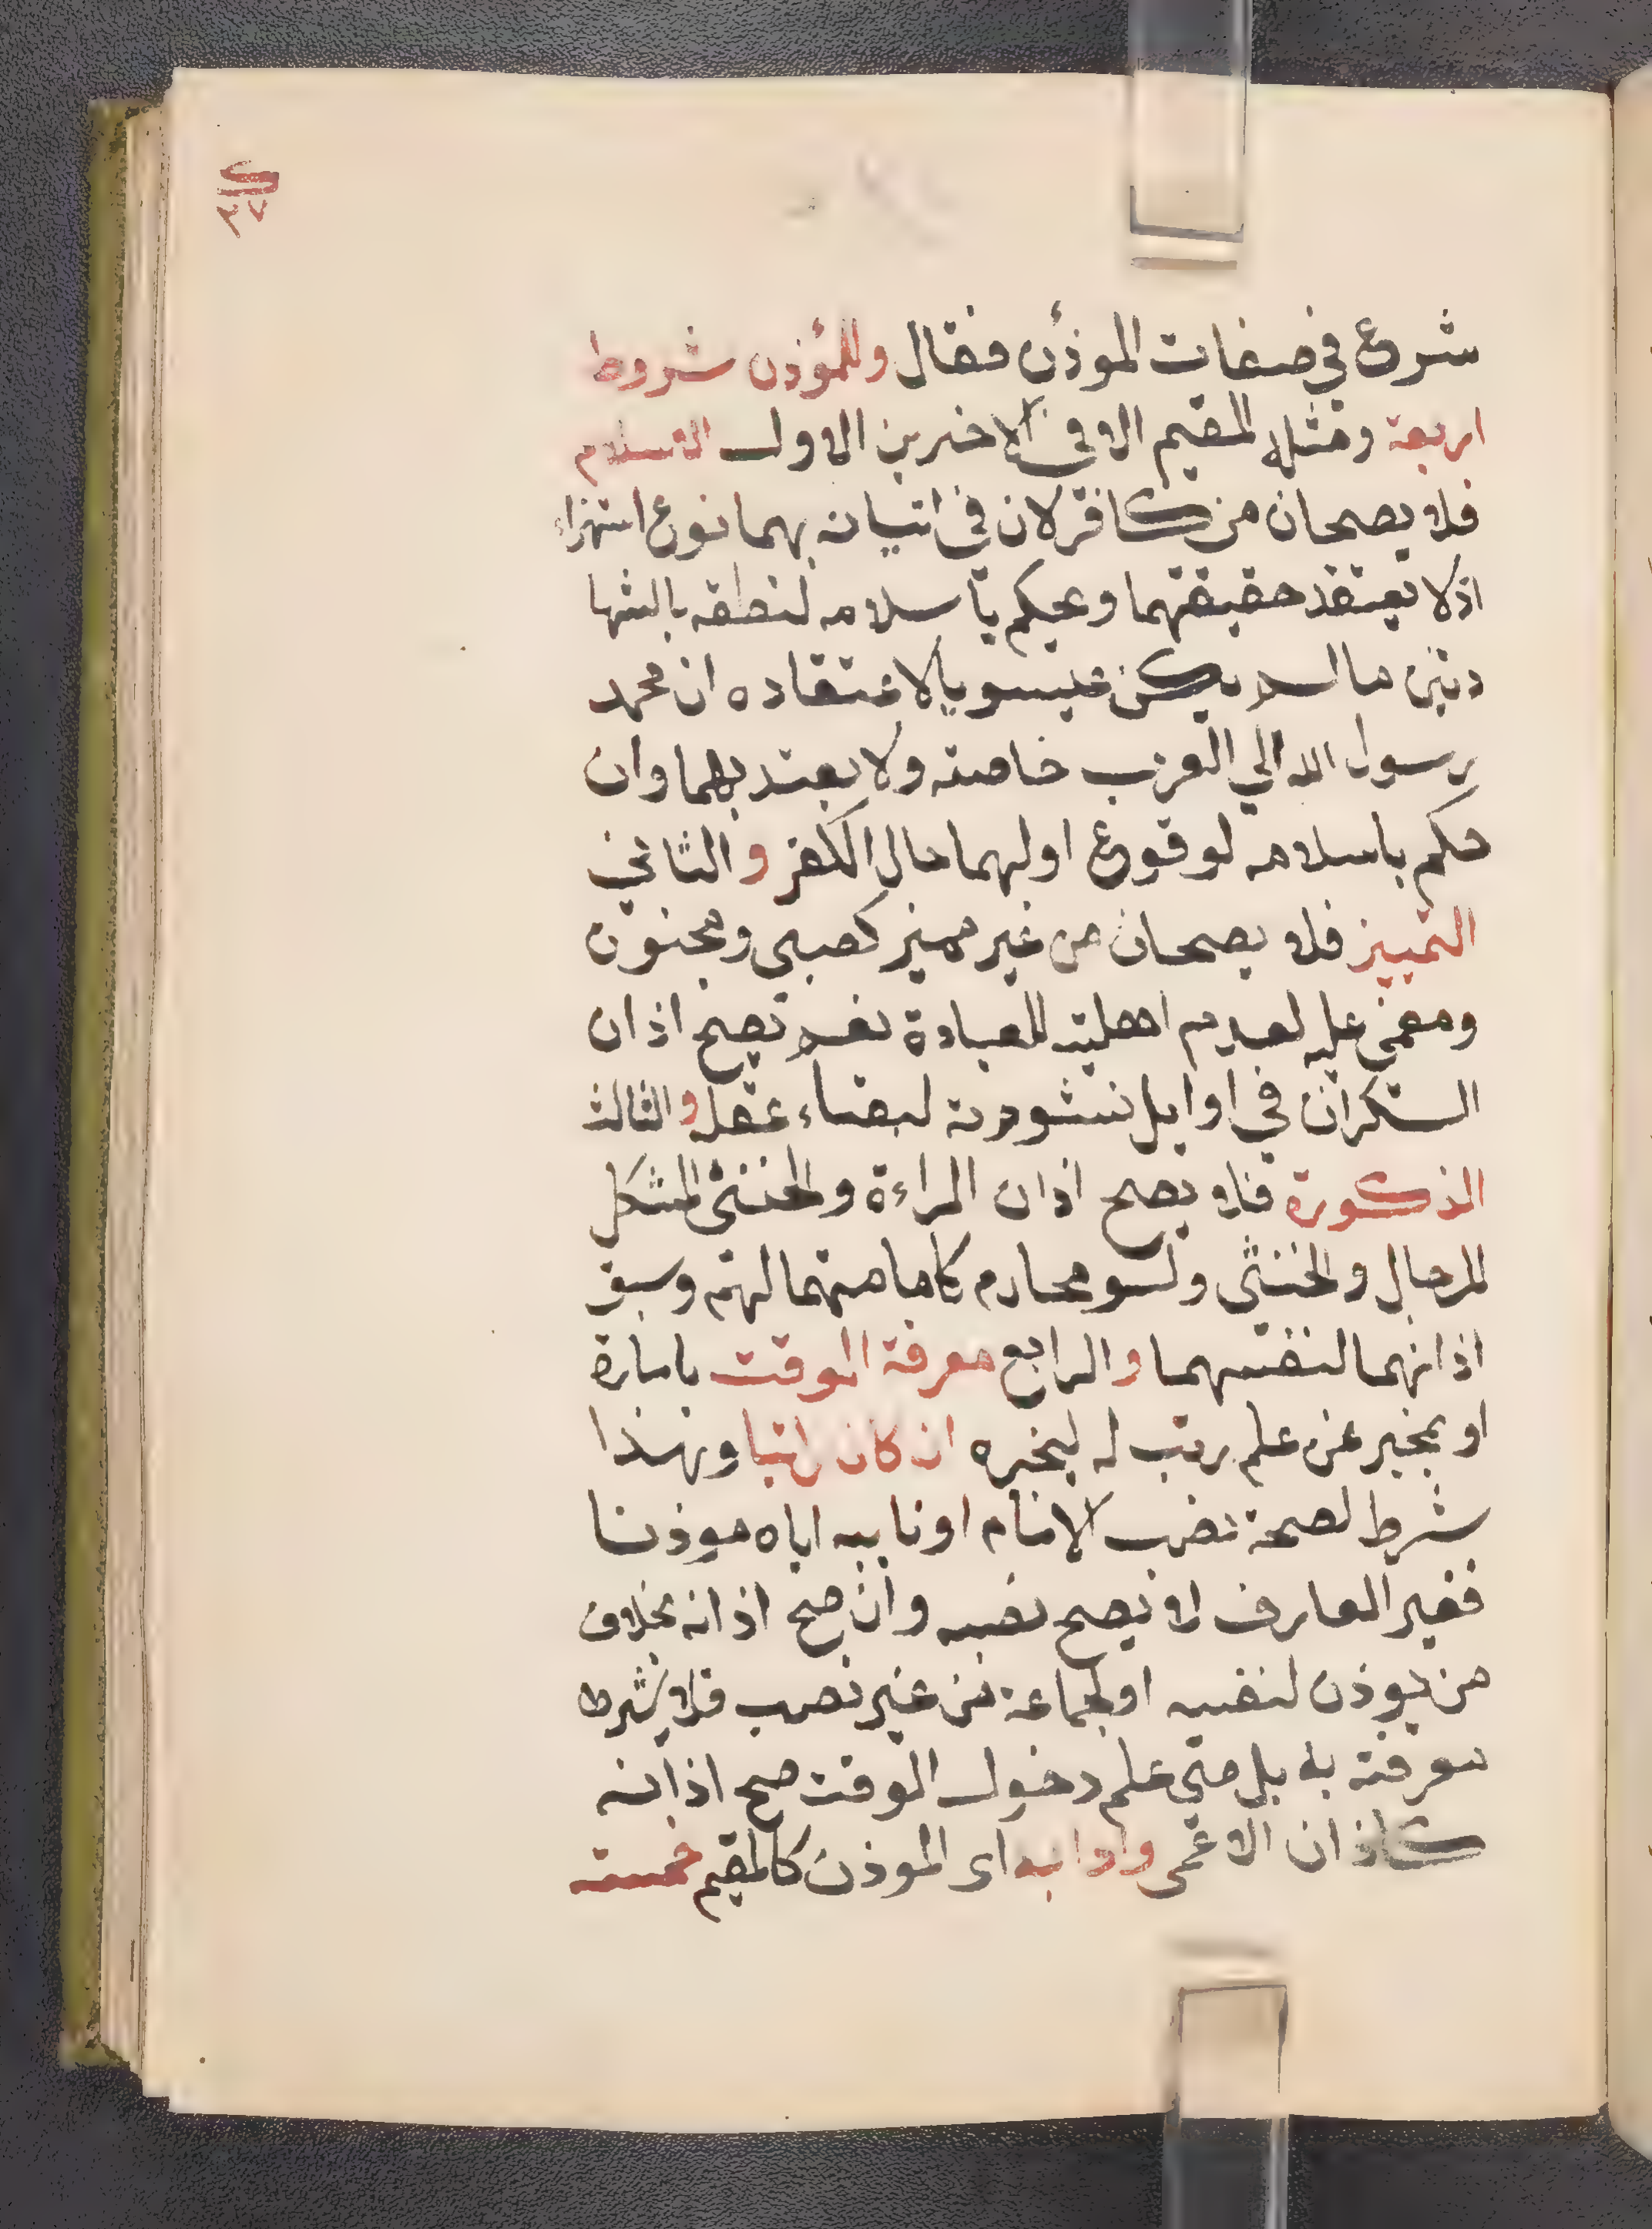 ٣٧
شرع في صفات الموذن فقال وللمؤذن شروط
اربعة ومثله المقيم الا في الاخيرين الاول الاسلام
فلا يصحان من كافر لان في اتيانه بهما نوع استهزاء
اذ لا يعتقد حقيقتهما ويحكم باسلامه لنطقه بالشها
دتين ما لم يكن عيسويا لاعتقاده ان محمد
رسول الله الي العرب خاصته ولا يعتد بهما وان
حكم باسلامه لوقوع اولهما حال الكفر والثاني
التمييز فلا يصحان من غير مميز كصبي ومجنون
ومغمي عليه لعدم اهليته للعبادة نعم يصح اذان
السكران في اوايل نشوته لبقاء عقله والثالث
الذكورة فلا يصح اذان المراءة والخنثي المشكل
للرجال والخنثي ولو محارم كامامتهما لهم وسبق
اذانهما لنفسهما والرابع معرفة الوقت بامارة
او بخبر عن علم يرتب له ليخبره ان كان راتبا وهذا
شرط لصحة نصب الامام او نايبه اياه موذنا
فغير العارف لا يصح نصبه وان صح اذانه بخلاف
من يوذن لنفسه او لجماعة من غير نصب فلا يشترط
معرفته به بل متي علم دخول الوقت صح اذانه
كاذان الاعمي وادابه اي الموذن كالمقيم خمسته